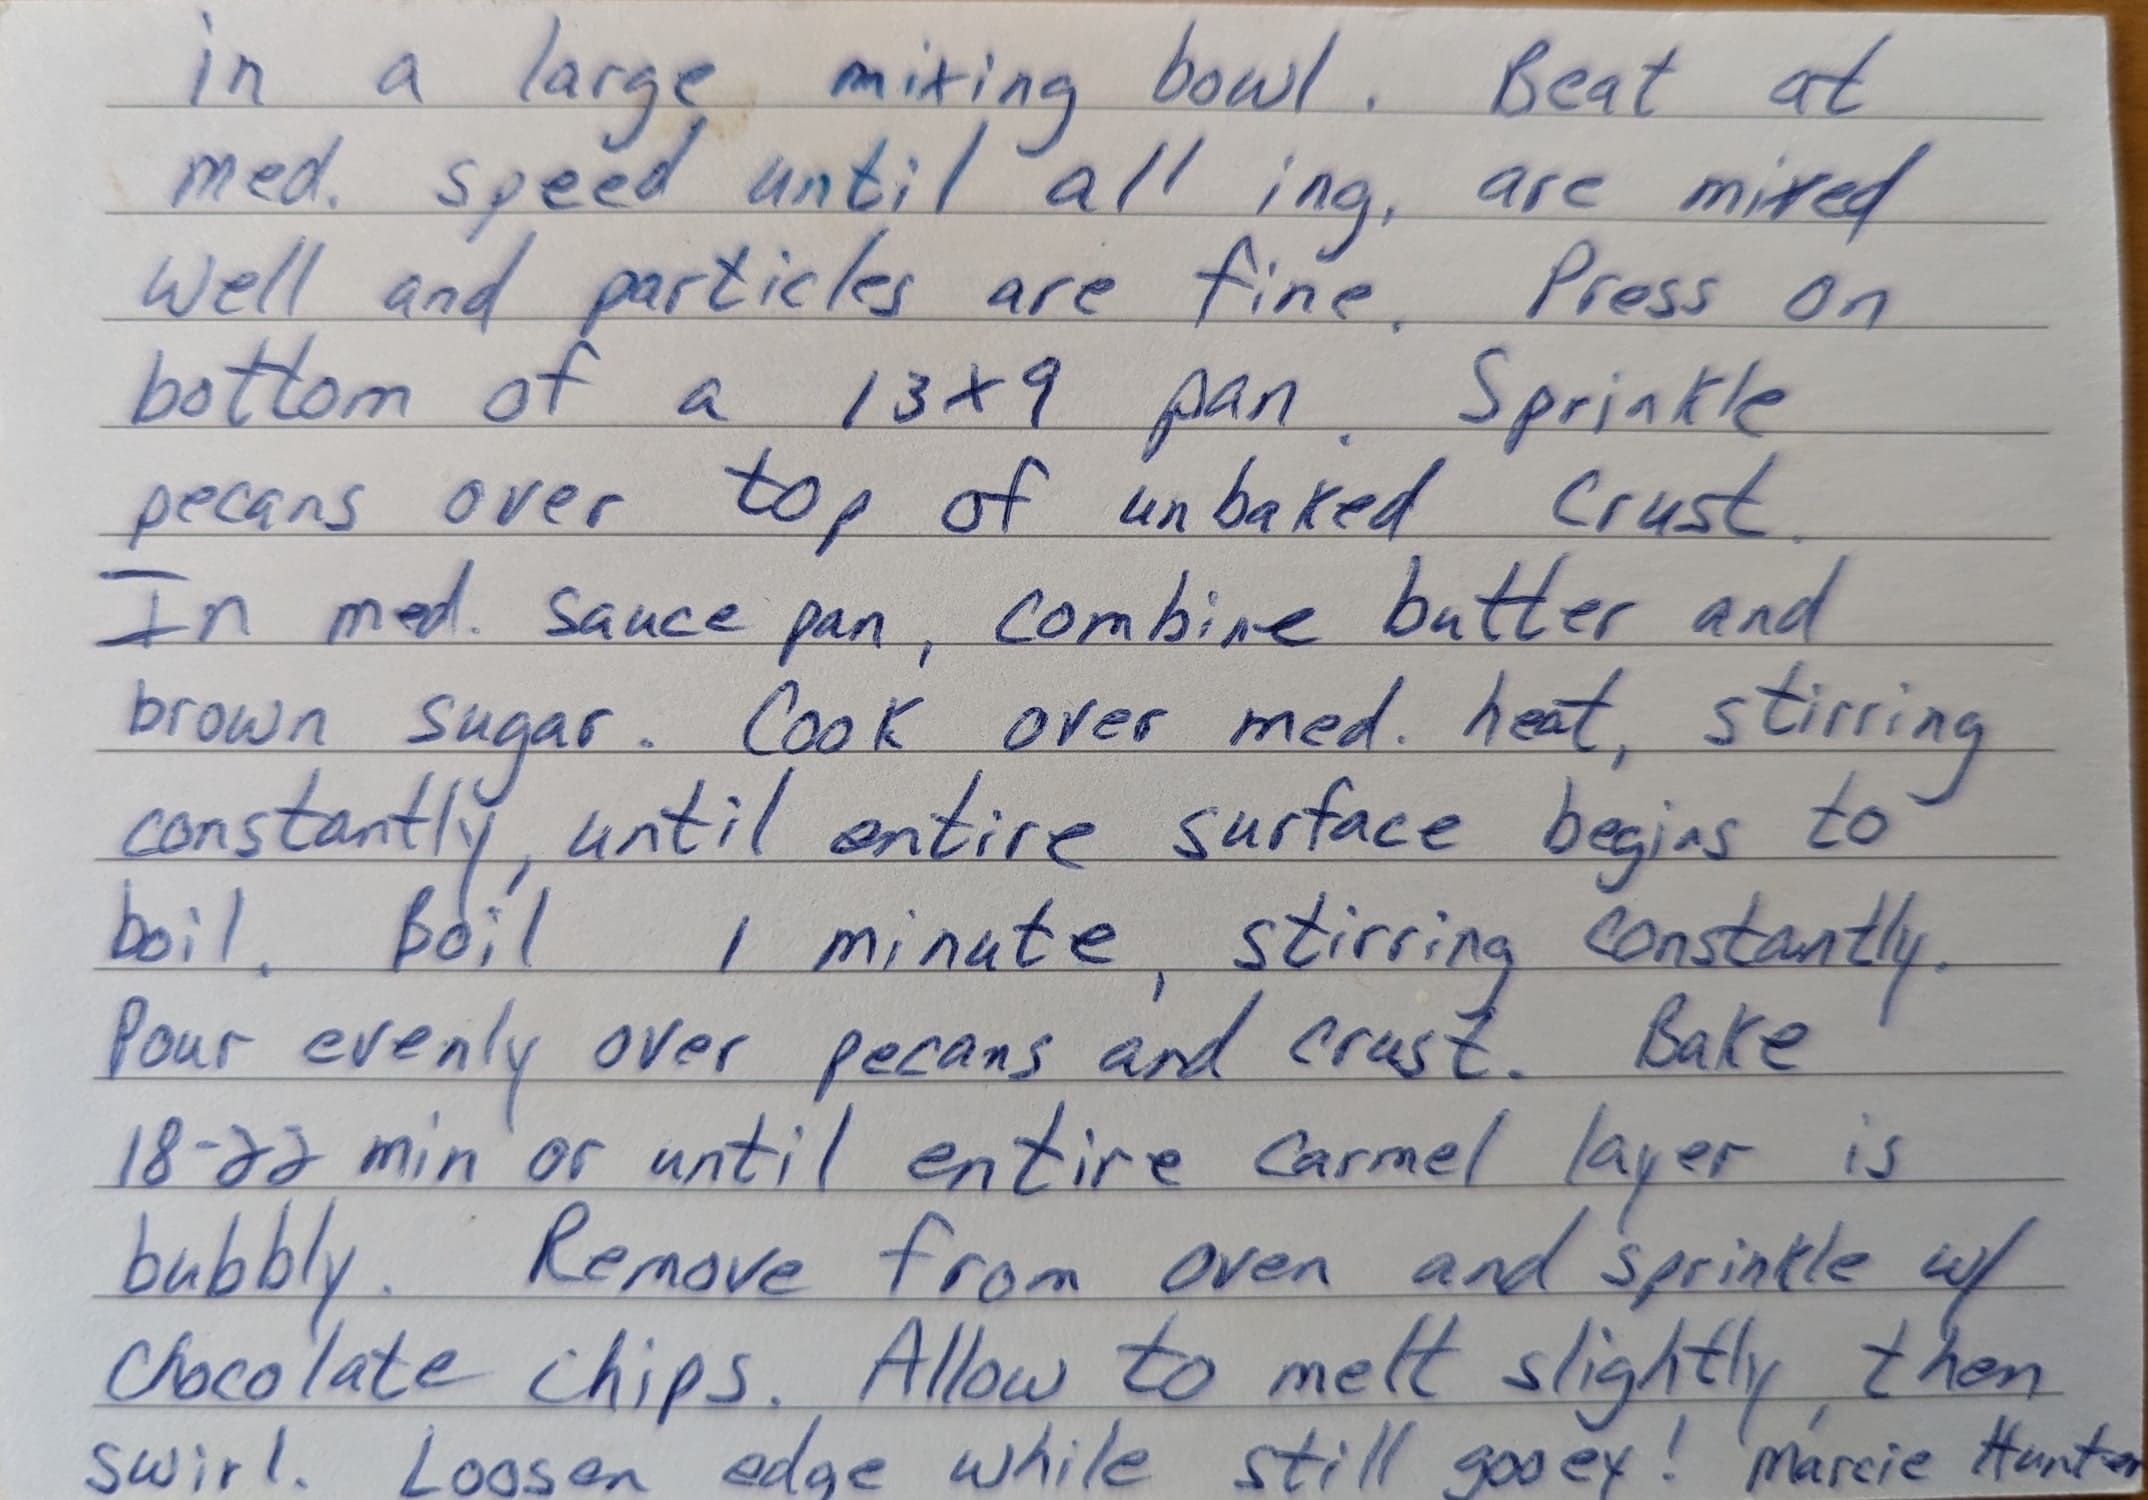 in a large mixing bowl. Beat at
med. speed until all ing. are mixed
well and particles are fine. Press on
bottom of a 13x9 pan. Sprinkle
pecans over top of unbaked crust.
In med. sauce pan, combine butter and
brown sugar. Cook over med. heat, stirring
constantly, until entire surface begins to
boil. Boil 1 minute, stirring constantly.
Pour evenly over pecans and crust. Bake
18-22 min or until entire carmel layer is
bubbly. Remove from oven and sprinkle w/
chocolate chips. Allow to melt slightly, then
swirl. Loosen edge while still gooey! Marcie Hunter